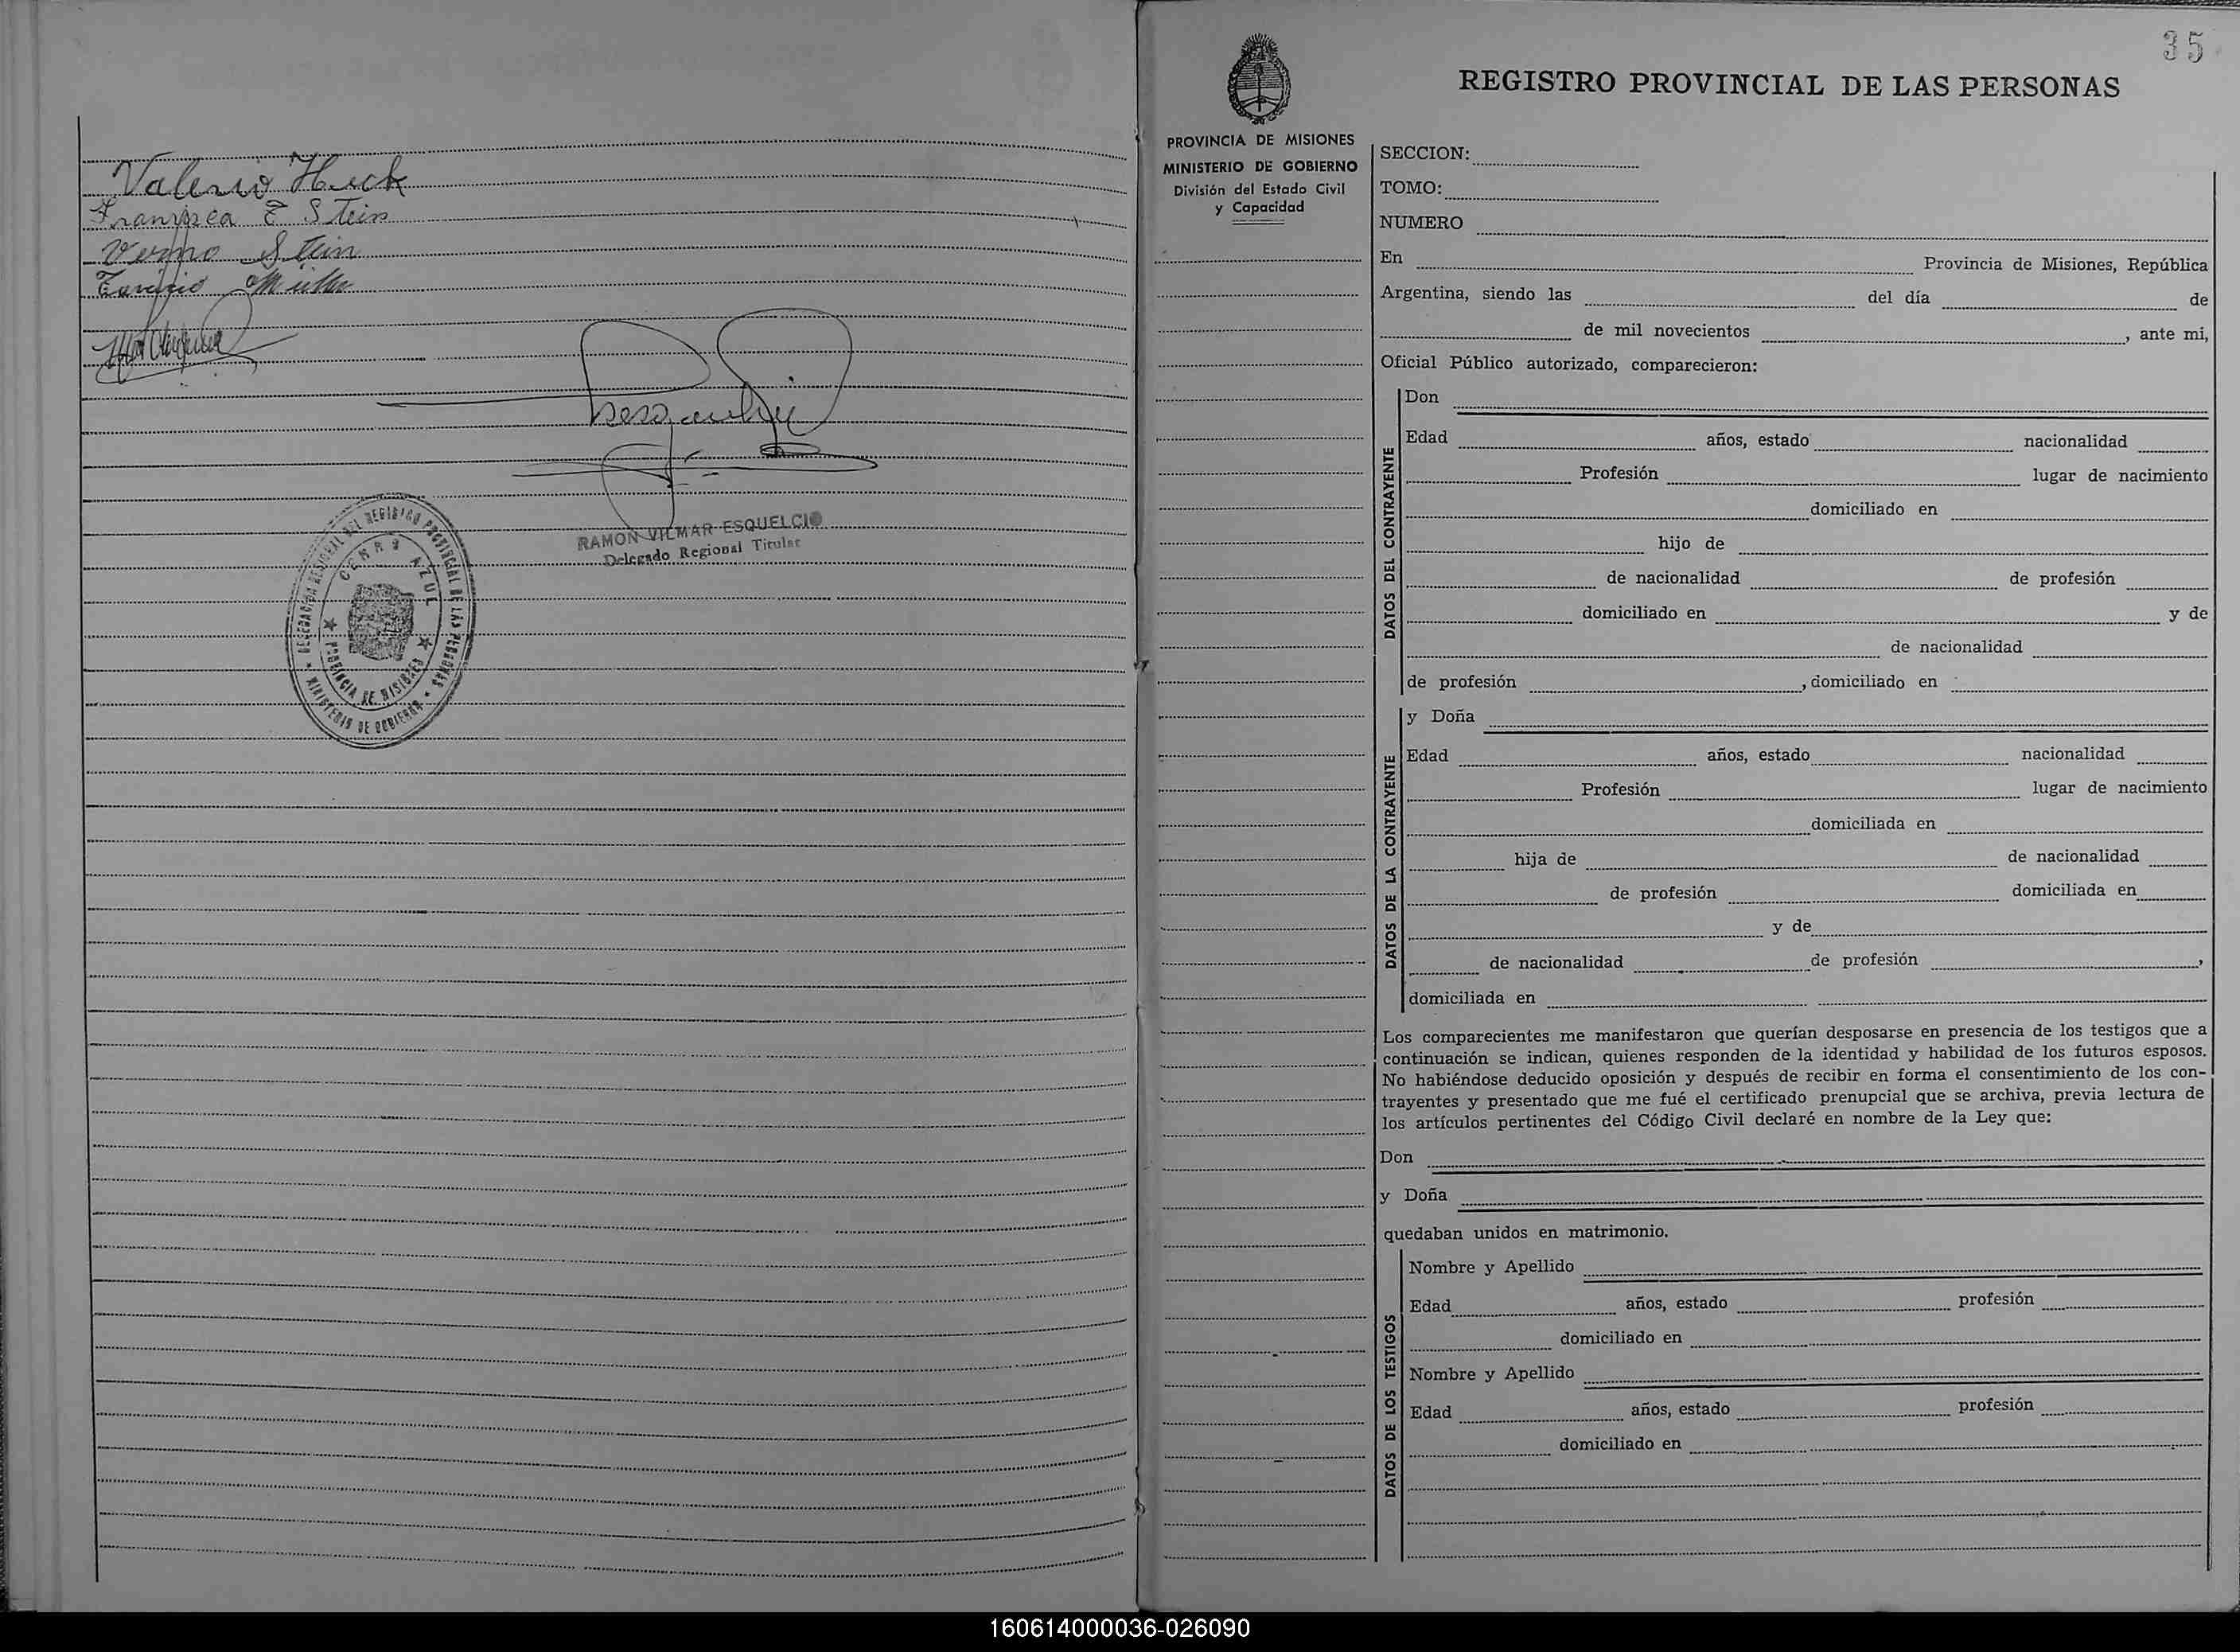 Valerio Heck
E Stein
Verno Stein
RAMON VILMAR ESQUELCIO
Delegado Regional Titular
DELEGACION REGIONAL DEL REGISTRO PROVINCIAL DE LAS PERSONAS
MINISTERIO DE GOBIERNO
CERRO AZUL
PROVINCIA DE MISIONES
35
REGISTRO PROVINCIAL DE LAS PERSONAS
PROVINCIA DE MISIONES
MINISTERIO DE GOBIERNO
División del Estado Civil
y Capacidad
SECCION:
TOMO:
NUMERO
En Provincia de Misiones, República
Argentina, siendo las del día de
de mil novecientos , ante mi,
Oficial Público autorizado, comparecieron:
DATOS DEL CONTRAYENTE
Don
Edad años, estado nacionalidad
Profesión lugar de nacimiento
domiciliado en
hijo de
de nacionalidad de profesión
domiciliado en y de
de nacionalidad
de profesión , domiciliado en
DATOS DE LA CONTRAYENTE
y Doña
Edad años, estado nacionalidad
Profesión lugar de nacimiento
domiciliada en
hija de de nacionalidad
de profesión domiciliada en
y de
de nacionalidad de profesión ,
domiciliada en
Los comparecientes me manifestaron que querían desposarse en presencia de los testigos que a
continuación se indican, quienes responden de la identidad y habilidad de los futuros esposos.
No habiéndose deducido oposición y después de recibir en forma el consentimiento de los con-
trayentes y presentado que me fué el certificado prenupcial que se archiva, previa lectura de
los artículos pertinentes del Código Civil declaré en nombre de la Ley que:
Don
y Doña
quedaban unidos en matrimonio.
DATOS DE LOS TESTIGOS
Nombre y Apellido
Edad años, estado profesión
domiciliado en
Nombre y Apellido
Edad años, estado profesión
domiciliado en
160614000036-026090